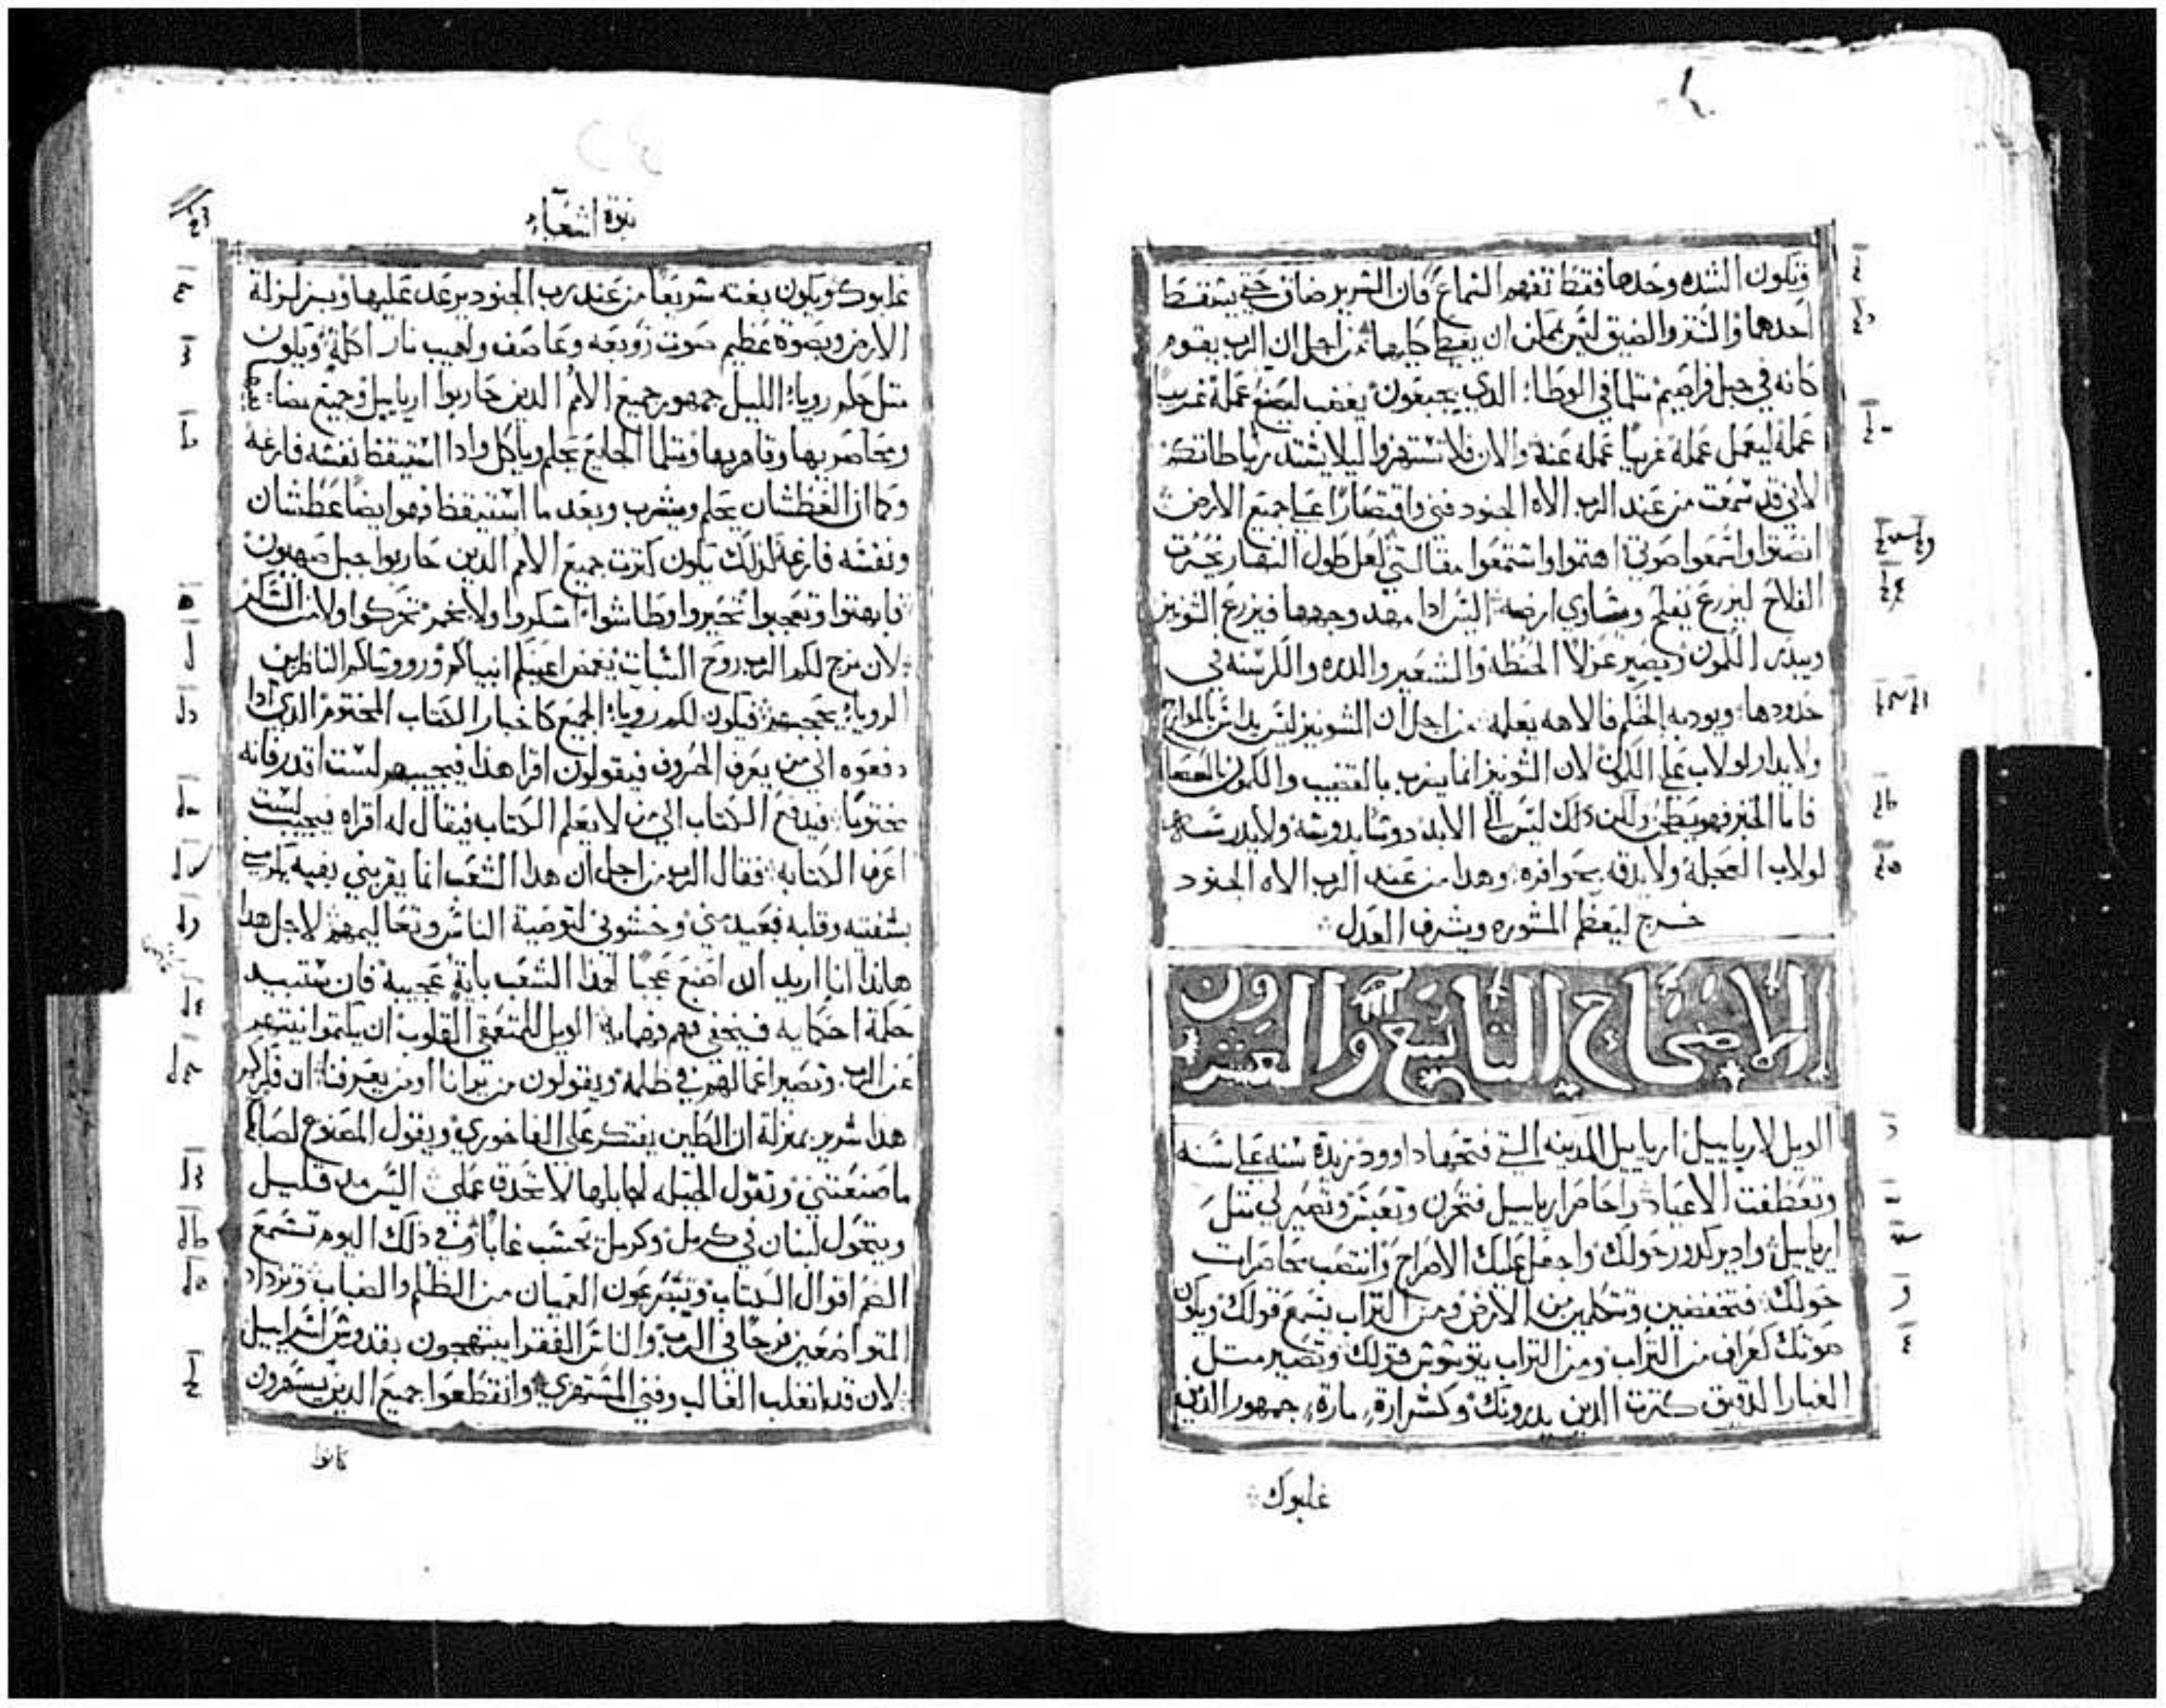 وتكون الشده وحدها فقط تفهم السماع فان السرير ضاق حتي يسقط
احدهما والستر الضيق ليس يمكن ان يغطي كليهما من اجل ان الرب يقوم
كانه في جبل فراصيم مثلما في الوطاء الذي بجبعون يغضب ليصنع عمله غريب
عمله ليعمل عمله غريبا عمله عنه والان فلا تستهزوا ليلا يشتد رباطاتكم
لاني قد سمعت من عند الرب الاه الجنود فني واقتصارا علي جميع الارض
انصتوا واسمعوا صوتي اهتموا واستمعوا مقالتي لعل طول النهار يحرت
الفلاح ليزرع يفلح ويساوي ارضه اليس ادا مهد وجهها فيزرع الشونيز
ويبدر الكمون ويصير عزلا الحنطه والشعير والدره والكرسنه في
حدودها ويودبه الحكم فالاهه يعلمه من اجل ان الشونيز ليس يداس بالموارج
ولا يدار لولاب علي الكمون لان الشونيز انما يضرب بالقضيب والكمون بالعصا
فاما الخبز فهو يطحن ولكن دلك ليس الي الابد دوسا يدوسه ولا يدرسه
لولاب العجلة ولا يدقه بحوافره وهدا من عند الرب الاه الجنود
خرج ليعظم المشوره ويشرف العدل
الاصحاح التاسع والعشرون
الويل لاريابيل اريابيل المدينه التي فتحها داوود نزيدة سنه علي سنه
وتعطفت الاعياد واحاصر اريابيل فتحزن وتعبس وتصير لي مثل
اريابيل وادير كدور حولك واجعل عليك الامراج وانتصب محاصرات
حولك فتخفضين وتتكلمين من الارض ومن التراب يسمع قولك ويكون
صوتك كعراف من التراب ومن التراب يتوشوش قولك وتصير مثل
الغبار الدقيق كثرت الدين يدرونك وكشرارة مارة جمهور الدين
غلبوك
نبوة اشعياء
غلبوك ويكون بغته سريعا من عند رب الجنود برعد عليها وبزلزلة
الارض وبصوة عظيم صوت زوبعه وعاصف ولهيب نار اكلة ويكون
مثل حلم رويا الليل جمهور جميع الامم الدين حاربوا اريابيل وجميع
ومحاصريها وقاهريها ومثلما الجايع يحلم وياكل وادا استيقظ نفسه فارغه
وكما ان العطشان يحلم ويشرب وبعد ما استيقظ فهو ايضا عطشان
ونفسه فارغة لدلك تكون كثرت جميع الامم الدين حاربوا جبل صهيون
فابهتوا وتعجبوا تحيروا وطاشوا اسكروا ولا بخمر تحركوا ولا من السكر
لان مزج لكم الرب روح السبات يغمض اعينكم انبياكم وروساكم الناظرين
الرويا يحجبهم فيكون لكم رويا الجميع كاخبار الكتاب المختوم الدي ادا
دفعوه الي من يعرف الحروف فيقولون اقرا هدا فيجيبهم لست اقدر فانه
مختوما فيدفع الكتاب الي من لا يعلم الكتاب فيقال له اقراه فيجيب لست
اعرف الكتابه فقال الرب من اجل ان هدا الشعب انما يقربني بفيه يكرمني
بشفتيه وقلبه فبعيد مني وخشوني لتوصية الناس وتعاليمهم لاجل هدا
هاندا انا اريد ان اصنع عجبا لهدا الشعب باية عجيبة فان ستبيد
حكمة احكمايه فيختفي فهم فهمايه الويل للمتعمقي القلوب ان يكتموا نيتهم
عن الرب وتصير اعمالهم في ظلمة ويقولون من يرانا او من يعرفنا ان فكركم
هدا شرير بمنزلة ان الطين يفتكر علي الفاخوري ويقول المصنوع لصانعه
ما صنعتني وتقول الجبله لجابلها لا تحدق عملي اليس من قليل
ويتحول لبنان في كرمل وكرمل تحسب غابا وفي ذلك اليوم تسمع
الصم اقوال الكتاب وتتضرعون العميان من الظلم والضباب وتزداد
المتواضعين فرحا في الرب والناس الفقرا يبتهجون بقدوس اسراييل
لان قد انغلب الغالب وفني المستهزي وانقطعوا جميع الدين يسهرون
كانوا